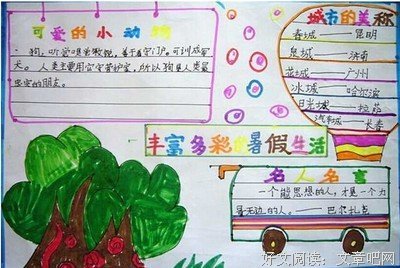 可爱的小动物
狗,听觉嗅觉敏锐,善于看守门户。可训成军
犬。人类主要用它守养护家,所以狗是人类最
忠实的朋友。
城市的美称
春城——昆明
泉城——济南
花城——广州
冰城——哈尔滨
日光城——拉萨
汽车城——长春
丰富多彩的暑假生活
名人名言
一个能思想的人,才是一个力
量无边的人。——巴尔扎克
好文阅读:文章吧网